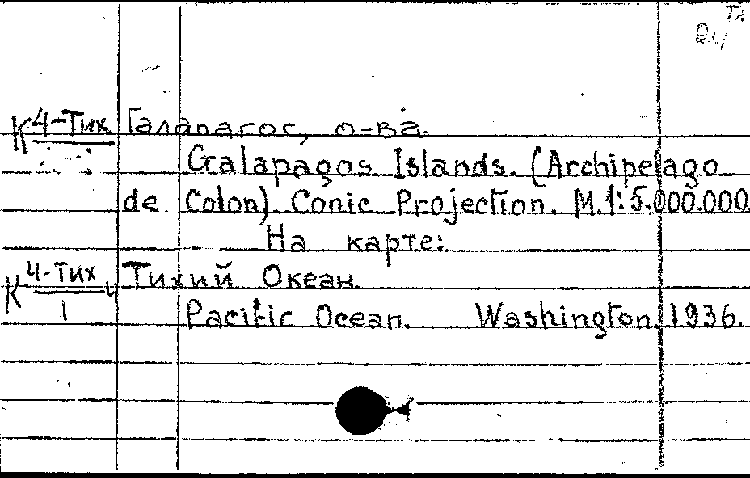 К 4-Тих Галапагос, о-ва.
Galapagos Islands. (Archipelago
de Colon) Conic Projection. М.1:5.000.000
На карте:
К 4-Тих Тихий Океан.
1 Pacific Ocean. Washington, 1936.